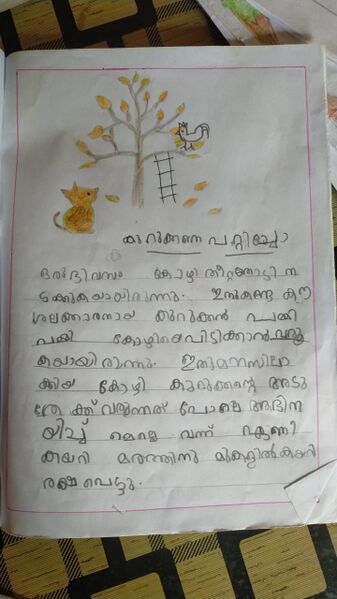 കുറുക്കനെ പറ്റിച്ചോ
ഒരു ദിവസം കോഴി തീറ്റതേടി ന
ടക്കുകയായിരുന്നു. ഇതുകണ്ട കൗ
ശലക്കാരനായ കുറുക്കൻ പമ്മി
പമ്മി കോഴിയെ പിടിക്കാൻ വരു
കയായിരുന്നു. ഇതുമനസിലാ
ക്കിയ കോഴി കുറുക്കന്റെ അടു
ത്തേക്ക് വരുന്നത് പോലെ അഭിന
യിച്ച് മെല്ലെ വന്ന് ഏണി
കയറി മരത്തിനു മുകളിൽ കയറി
രക്ഷപെട്ടു.